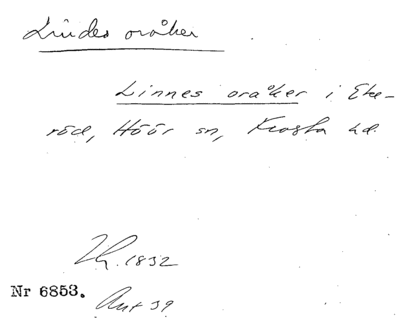 Lindes oråker
Linnes oråker i Eke-
röd, Höör sn, Frosta hd.
1832
Nr 6853.
Ant 39